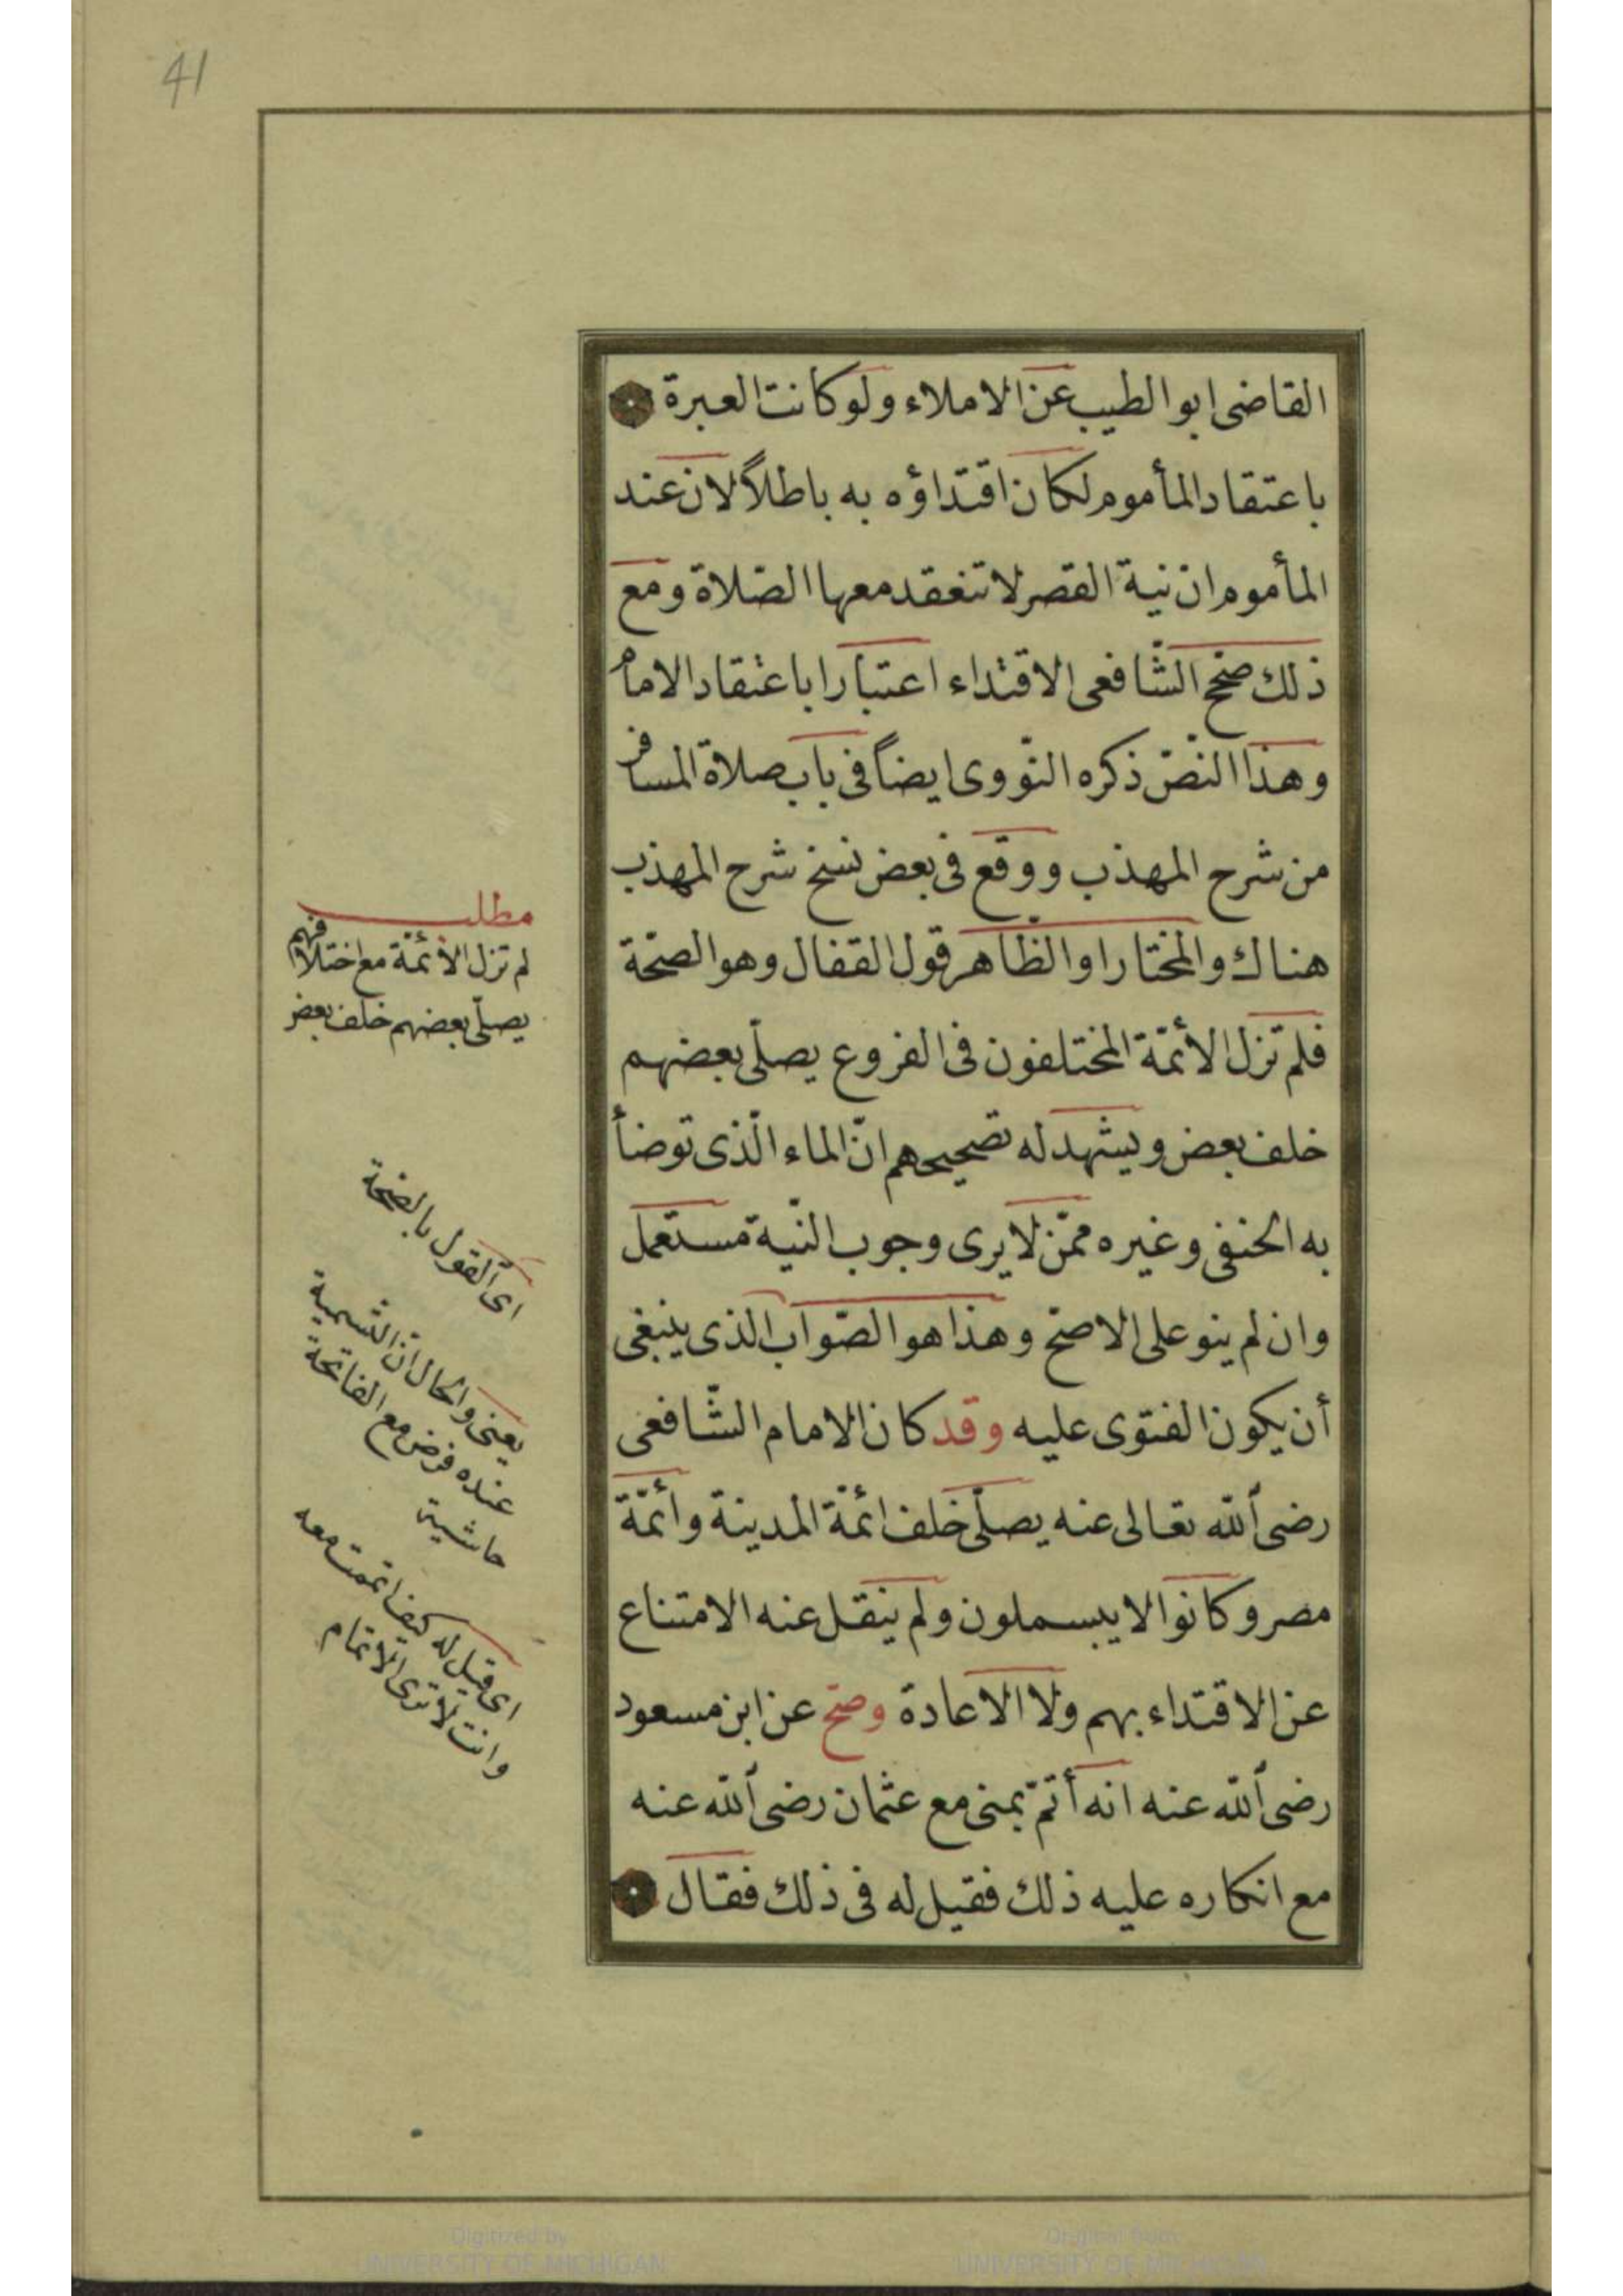 41
القاضى ابو الطيب عن الاملاء ولو كانت العبرة
باعتقاد المأموم لكان اقتداؤه به باطلاً لان عند
المأموم ان نية القصر لا تنعقد معها الصّلاة ومع
ذلك صحّح الشّافعى الاقتداء اعتبارا باعتقاد الامام
وهذا النصّ ذكره النّووى ايضاً فى باب صلاة المسافر
من شرح المهذب ووقع فى بعض نسخ شرح المهذب
هناك والمختار او الظاهر قول القفال وهو الصحّة
فلم تزل الأئمّة المختلفون فى الفروع يصلّى بعضهم
خلف بعض ويشهد له تصحيحهم انّ الماء الّذى توضأ
به الحنفى وغيره ممّن لا يرى وجوب النّية مستعمل
وان لم ينو على الاصحّ وهذا هو الصّواب الذى ينبغى
أن يكون الفتوى عليه وقد كان الامام الشّافعى
رضى الله تعالى عنه يصلّى خلف ائمّة المدينة وأئمّة
مصر وكانوا لا يبسملون ولم ينقل عنه الامتناع
عن الاقتداء بهم ولا الاعادة وصحّ عن ابن مسعود
رضى الله عنه انه أتمّ بمنى مع عثمان رضى الله عنه
مع انكاره عليه ذلك فقيل له فى ذلك فقال
مطلب
لم تزل الأئمّة مع اختلافهم
يصلّى بعضهم خلف بعض
اى القول بالصحة
يعنى والحال انّ التسمية
عنده فرض مع الفاتحة
حاشية
اى قيل له كيف اتممت معه
وانت لا ترى الاتمام
Digitized by
UNIVERSITY OF MICHIGAN
Original from
UNIVERSITY OF MICHIGAN